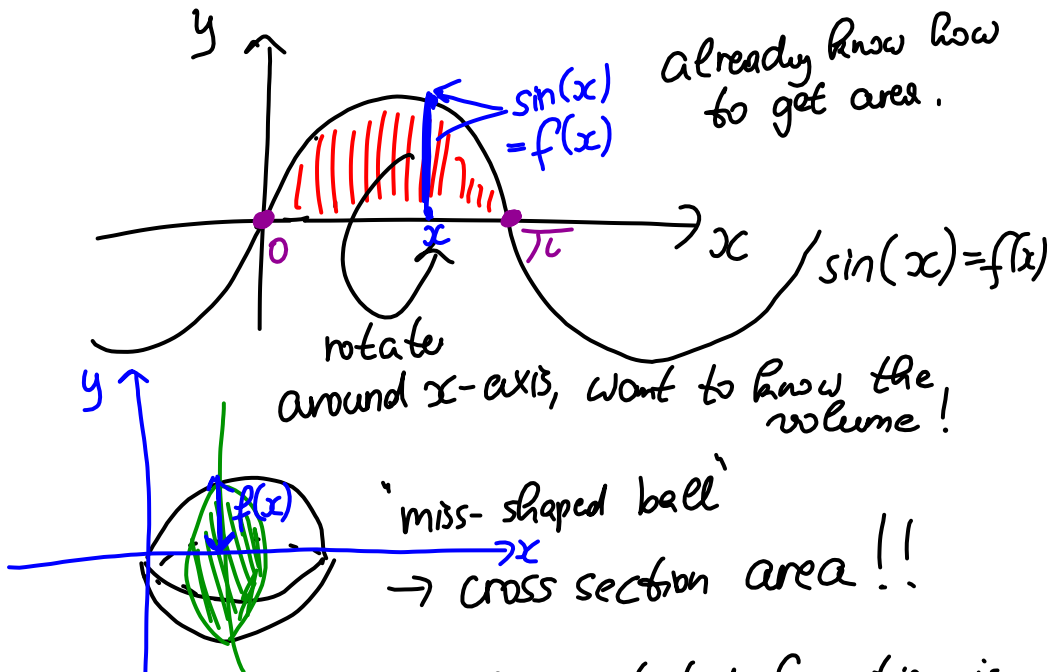 y
already know how
to get area.
sin(x)
= f(x)
0
x
π
x
sin(x)=f(x)
rotate
around x-axis, want to know the
volume!
y
f(x)
"miss-shaped ball"
x
→ cross section area!!